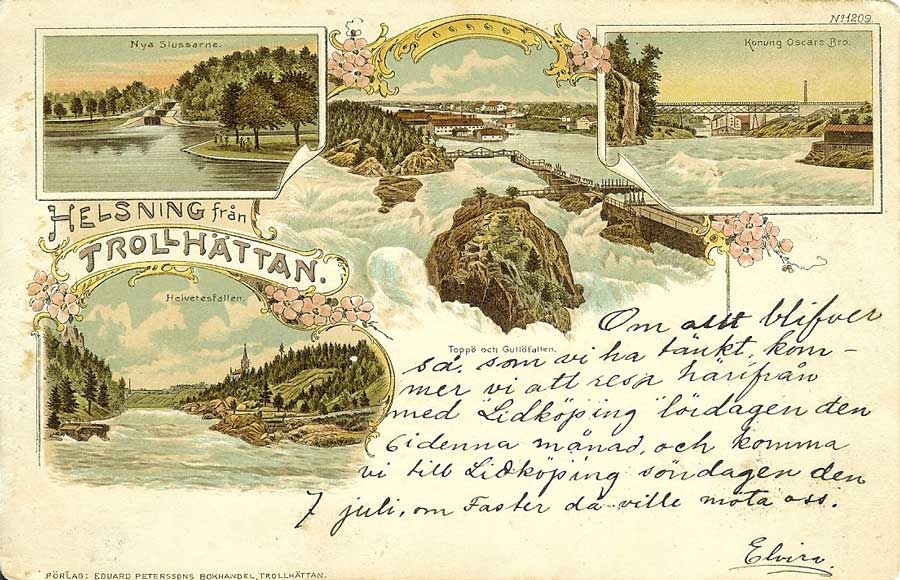 No 1209.
Nya Slussarne.
Konung Oscars Bro.
HELSNING från
TROLLHÄTTAN.
Helvetesfallen.
Toppö och Gullöfallen.
Om allt blifver
så, som vi ha tänkt, kom-
mer vi att resa härifrån
med "Lidköping" lördagen den
6 denna månad, och komma
vi till Lidköping söndagen den
7 juli, om Faster då ville möta oss.
Elvira
FÖRLAG: EDUARD PETERSSONS BOKHANDEL, TROLLHÄTTAN.